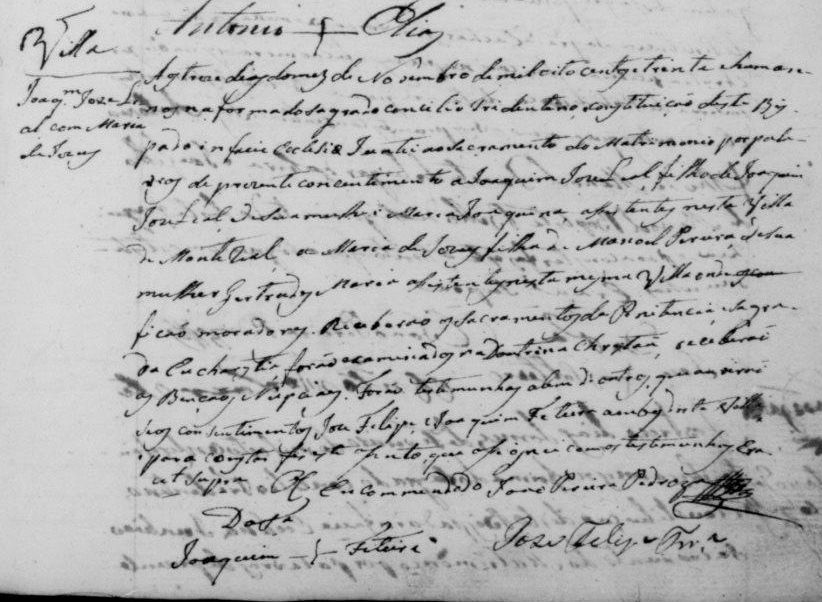 Antonio + Elias
Villa
Joaqm Joze Le
al com Maria
de Jezus
Aos treze dias do mez de Novembro de mil oito centos e trinta e hum an
nos na forma do Sagrado concilio Tridentino constituição deste Bis
pado in facie Ecclesiæ Juntei ao Sacramento do Matrimonio por pala
vras de prezente concentimento a Joaquim Joze Leal, filho de Joaquim
Joze Leal, e de sua mulher Maria Joaquina, asistentes nesta Villa
de Monte Real, e Maria de Jezus filha de Manoel Pereira, e de sua
mulher Gertrudes Maria asistentes nesta mesma Villa onde
ficão moradores. Receberão os Sacramentos da Penitencia, Sagra
da Eucharystia forão examinados na Doutrina Chrystan, e receberão
as Bençaos Nupciaes. Forão testimunhas alem de outros, que ouvirão
seos consentimentos Joze Felipe, e Joaquim Feteira ambos desta Villa
e para constar fis este asento que asignei com as testimunhas Era
ut supra O Encommendado Joze Pereira Pedroza
Da Ta
Joaquim + Feteira
Joze Felipe Frra